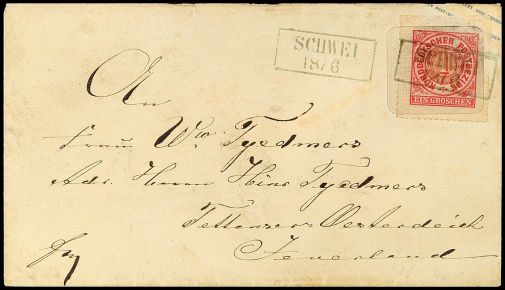 SCHWEI
18/6
NORDDEUTSCHER POSTBEZIRK
EIN GROSCHEN
An
Frau Wwe Tyedmers
Adr. Herrn Hinr Tyedmers
Tettenser Oesterdeich
Jeverland